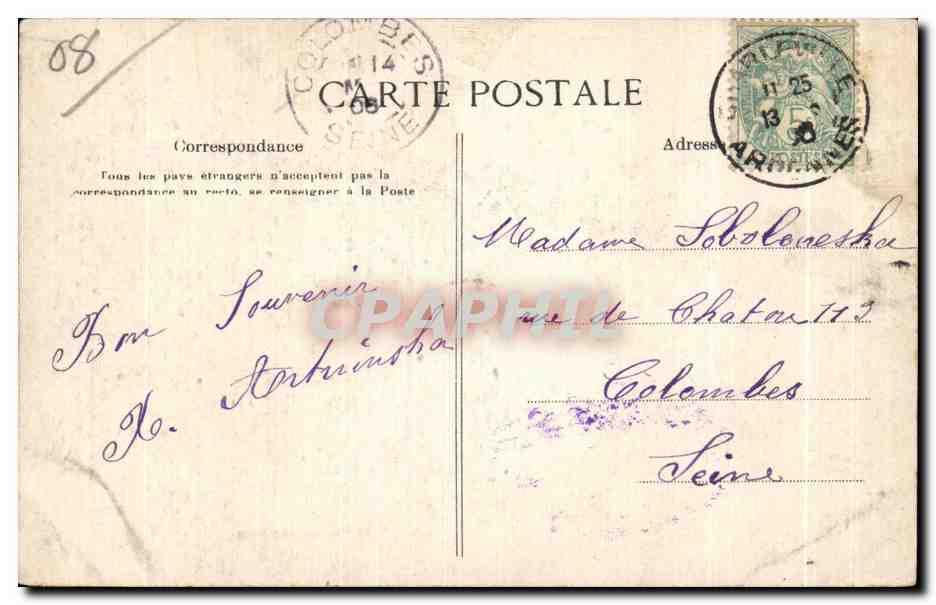 08
COLOMBES
14
05
SEINE
CARTE POSTALE
CHARLEVILLE
11 25
13
ARDENNES
Correspondance
Adresse
Tous les pays étrangers n'acceptent pas la
correspondance au recto, se renseigner à la Poste
Madame Soboloueska
rue de Chatou 113
Colombes
Seine
Bon Souvenir
X. Artuinska
CPAPHIL